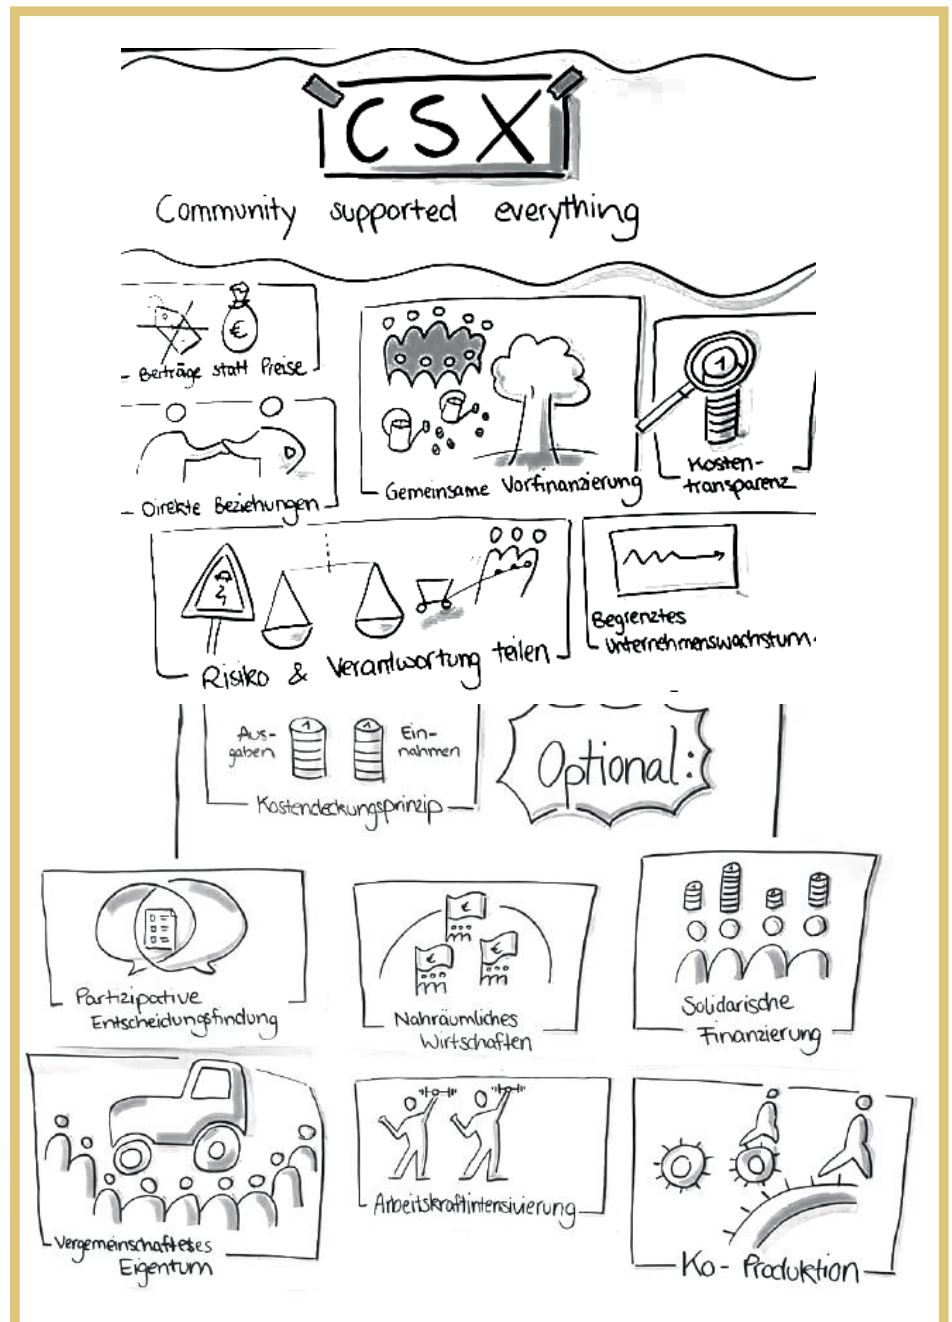 CSX
Community supported everything
€
Beiträge statt Preise
Direkte Beziehungen
Gemeinsame Vorfinanzierung
1
Kosten-
transparenz
Risiko & Verantwortung teilen
Begrenztes
Unternehmenswachstum
Aus-
gaben
1
1
Ein-
nahmen
Kostendeckungsprinzip
Optional:
Partizipative
Entscheidungsfindung
€
€
€
Nahräumliches
Wirtschaften
Solidarische
Finanzierung
Vergemeinschaftetes
Eigentum
Arbeitskraftintensivierung
Ko-Produktion